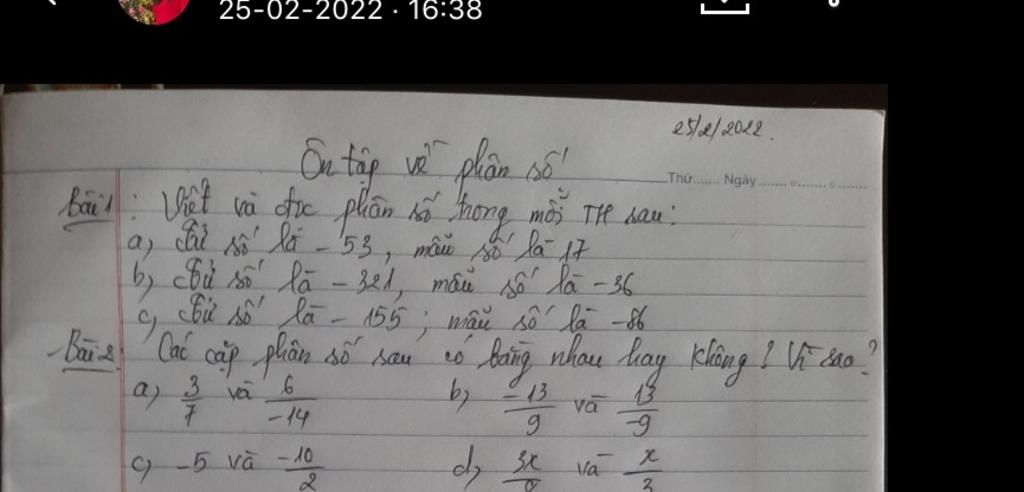 25-02-2022 · 16:38
25/2/2022.
Ôn tập về phân số
Thứ...... Ngày.......
Bài 1: Viết và đọc phân số trong mỗi TH sau:
a, Tử số là -53, mẫu số là 17
b, Tử số là -321, mẫu số là -36
c, Tử số là -155; mẫu số là -86
-Bài 2: Các cặp phân số sau có bằng nhau hay không? Vì sao?
a) 3/7 và 6/-14 b, -13/9 và 13/-9
c, -5 và -10/2 d, 3x/9 và x/3